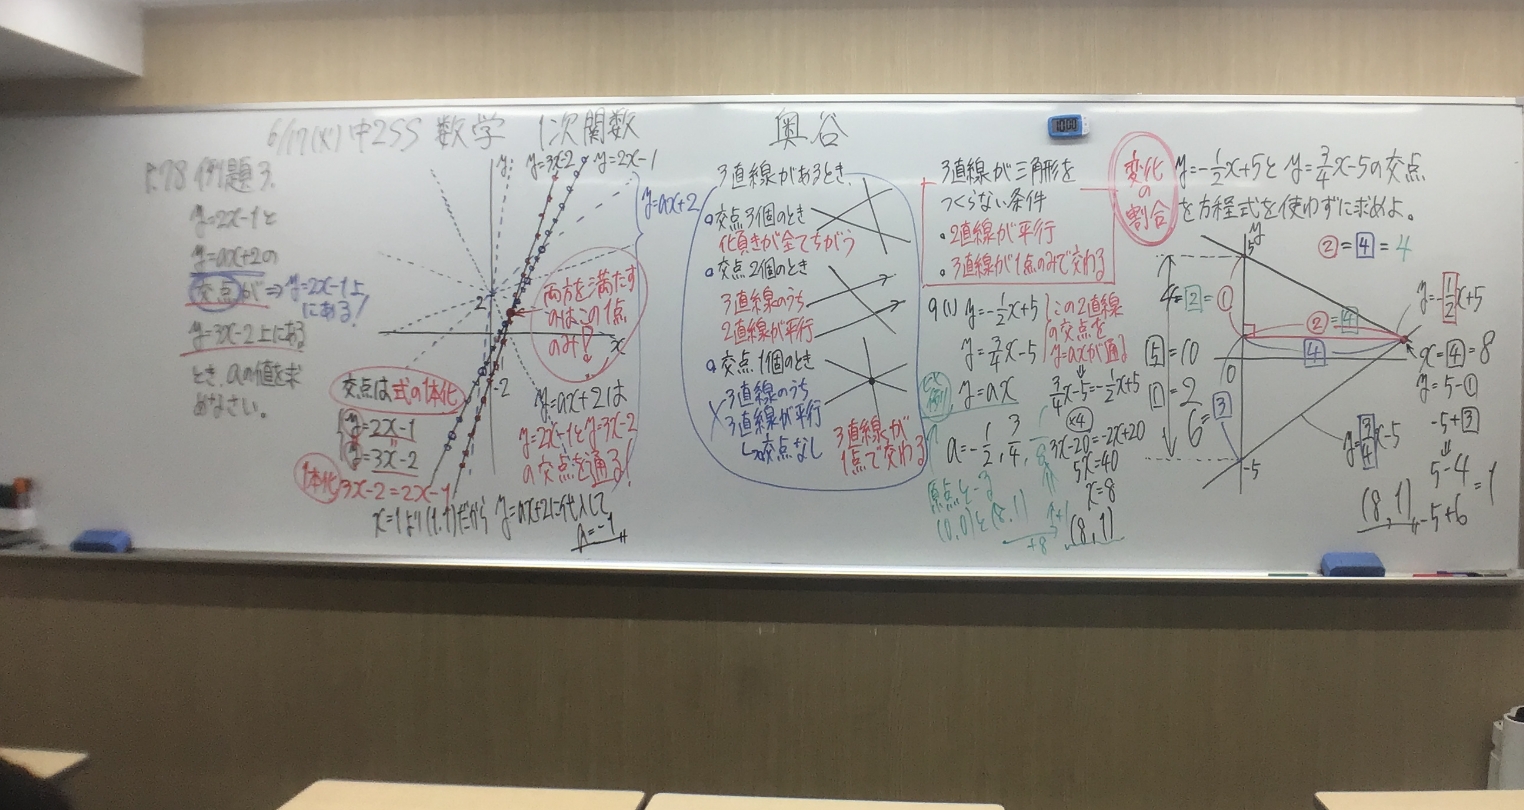 6/17(火) 中2SS 数学 1次関数 奥谷
P.78 例題3.
y=2x-1と
y=ax+2の
交点が⇒y=2x-1上
にある!
y=3x-2上にある
とき、aの値を求
めなさい。
y=3x-2
y=2x-1
y=ax+2
y
2
-2
x
両方を満たす
のはこの1点
のみ!
交点は式の一体化
y=2x-1
y=3x-2
一体化 3x-2=2x-1
x=1より(1,1)だから y=ax+2に代入して
a=-1
y=ax+2は
y=2x-1とy=3x-2
の交点を通る!
3直線があるとき、
交点3個のとき
傾きが全てちがう
交点2個のとき
3直線のうち
2直線が平行
交点1個のとき
3直線のうち
3直線が平行
↳交点なし
3直線が
1点で交わる
3直線が三角形を
つくらない条件
・2直線が平行
・3直線が1点のみで交わる
9(1) y=-1/2x+5
y=3/4x-5
この2直線
の交点を
y=axが通る
y=ax
a=-1/2, 3/4, 1/8
原点を
(0,0)と(8,1)
+1
+8
3/4x-5=-1/2x+5
×4
3x-20=-2x+20
5x=40
x=8
(8,1)
変化
の
割合
y=-1/2x+5と y=3/4x-5の交点
を方程式を使わずに求めよ。
②=4=4
y
5
4=2=①
②=4
4
5=10
1=2
6=3
0
-5
y=-1/2x+5
x=4=8
y=5-①
-5+3
5-4
=1
-5+6
y=3/4x-5
(8,1)